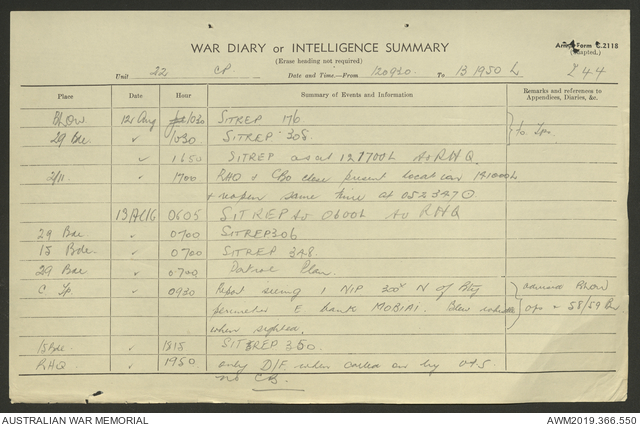 WAR DIARY or INTELLIGENCE SUMMARY
Army Form C.2118
(Erase heading not required)
(Adapted.)
Unit 22 CP. Date and Time—From 120930. To 131950 L 244
Place Date Hour Summary of Events and Information Remarks and references to Appendices, Diaries, &c.
12 Aug 1030 SITREP 176
29 Bde ✓ 1030 SITREP 308. to Tps.
✓ 1650 SITREP as at 121700L to RHQ.
2/11 ✓ 1700 RHQ + CBO close present location 141000L
+ reopen same time at 052347O
13 AUG 0605 SITREP to 0600L to RHQ
29 Bde ✓ 0700 SITREP 306
15 Bde ✓ 0700 SITREP 348
29 Bde ✓ 0700 Patrol Plan
C Tp. ✓ 0930 Report seeing 1 NIP 300x N of Bty
perimeter E bank MOBIAI. Blew
when sighted. 58/59 Bn
15 Bde ✓ 1815 SITREP 350
RHQ ✓ 1950 only D/F when called on by
no CB.
AUSTRALIAN WAR MEMORIAL
AWM2019.366.550